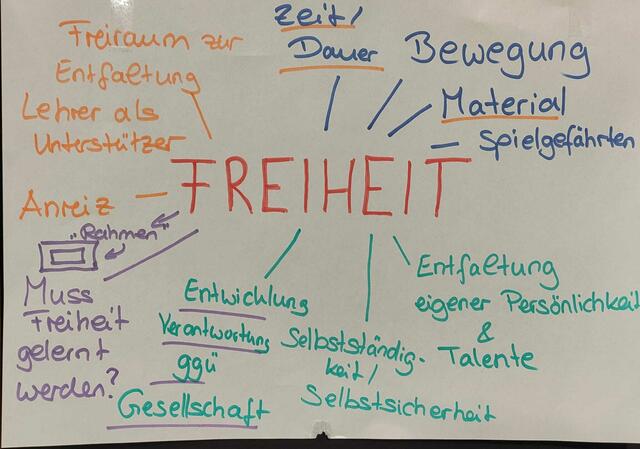 Freiraum zur
Entfaltung
Lehrer als
Unterstützer
Anreiz
Zeit/
Dauer
Bewegung
Material
Spielgefährten
FREIHEIT
"Rahmen"
Muss
Freiheit
gelernt
werden?
Entwicklung
Verantwortung
ggü
Gesellschaft
Selbstständig-
keit/
Selbstsicherheit
Entfaltung
eigener Persönlichkeit
&
Talente